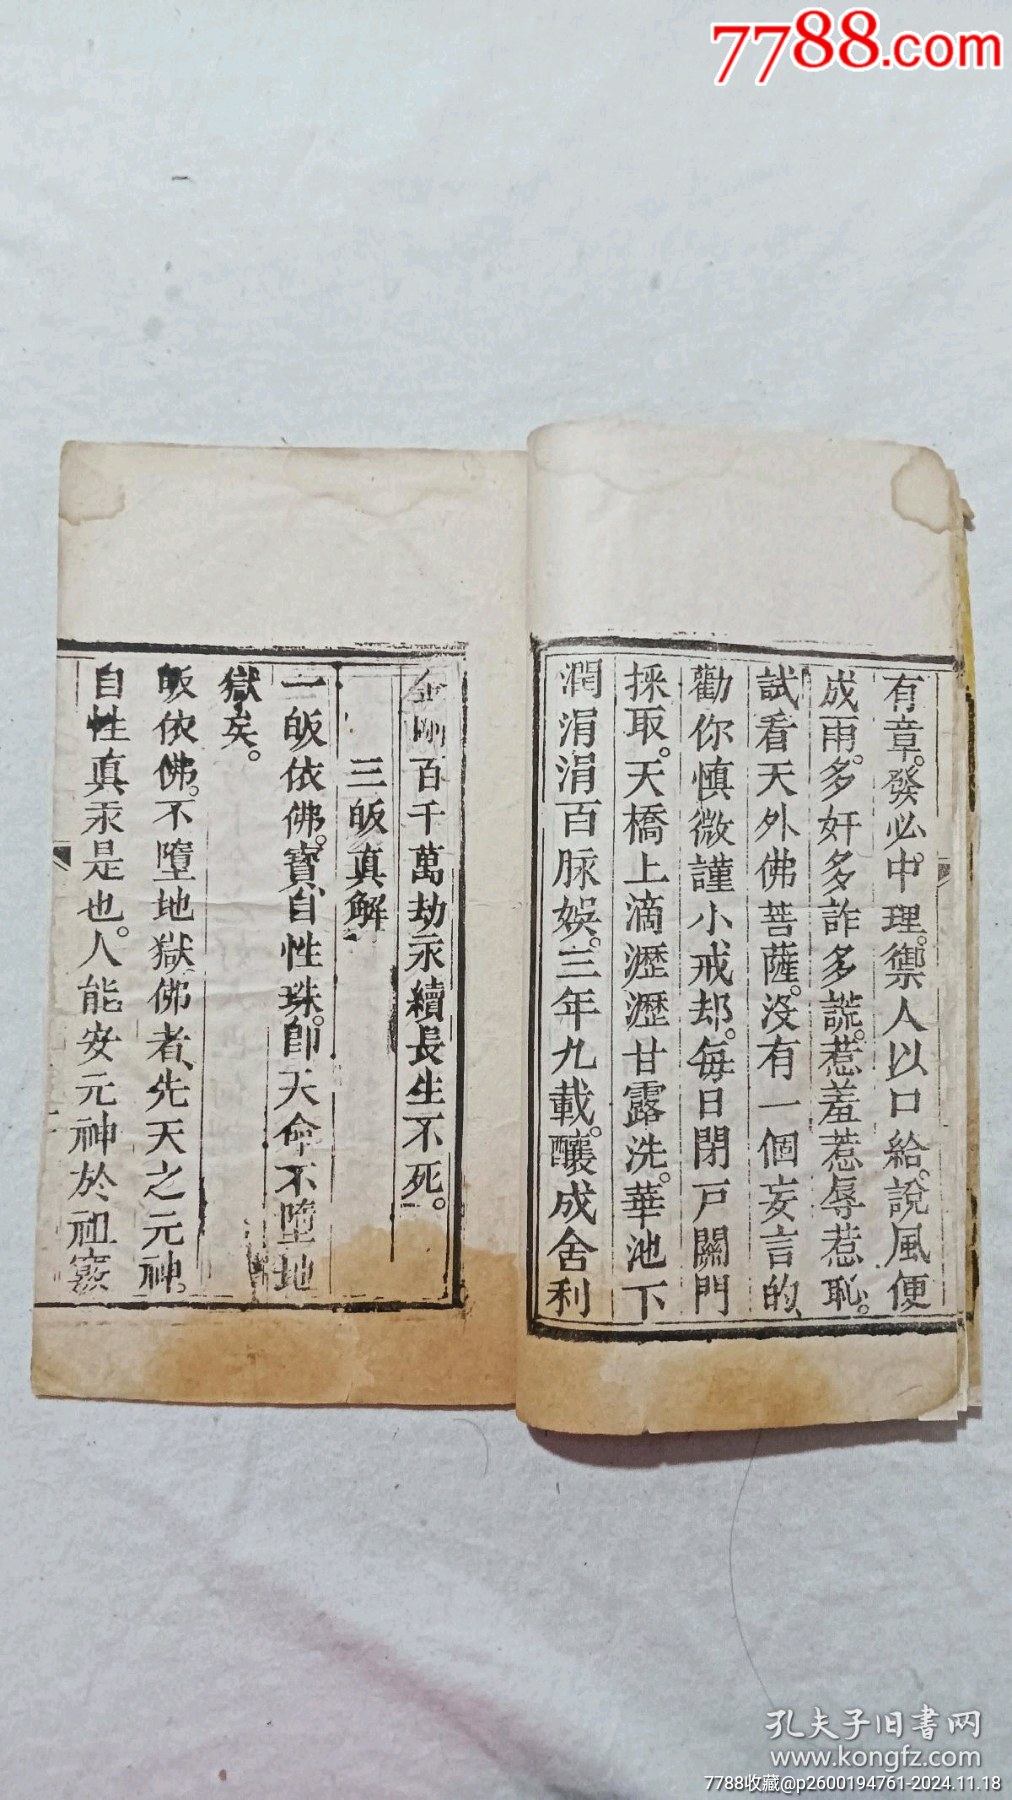 7788.com
有章。發必中理。禦人以口給。說風便
成雨。多奸多詐多謊。惹羞惹辱惹恥。
試看天外佛菩薩。沒有一個妄言的、
勸你慎微謹小戒却。每日閉戸關門
採取。天橋上滴瀝瀝甘露洗。華池下
潤涓涓百脉娛。三年九載。釀成舍利
金剛百千萬劫永續長生不死。
三皈真解
一皈依佛。寶、自性珠。卽天命不墮地
獄矣。
皈依佛。不墮地獄佛者、先天之元神。
自性真汞是也。人能安元神於祖竅
孔夫子旧書网
www.kongfz.com
7788收藏@p2600194761-2024.11.18